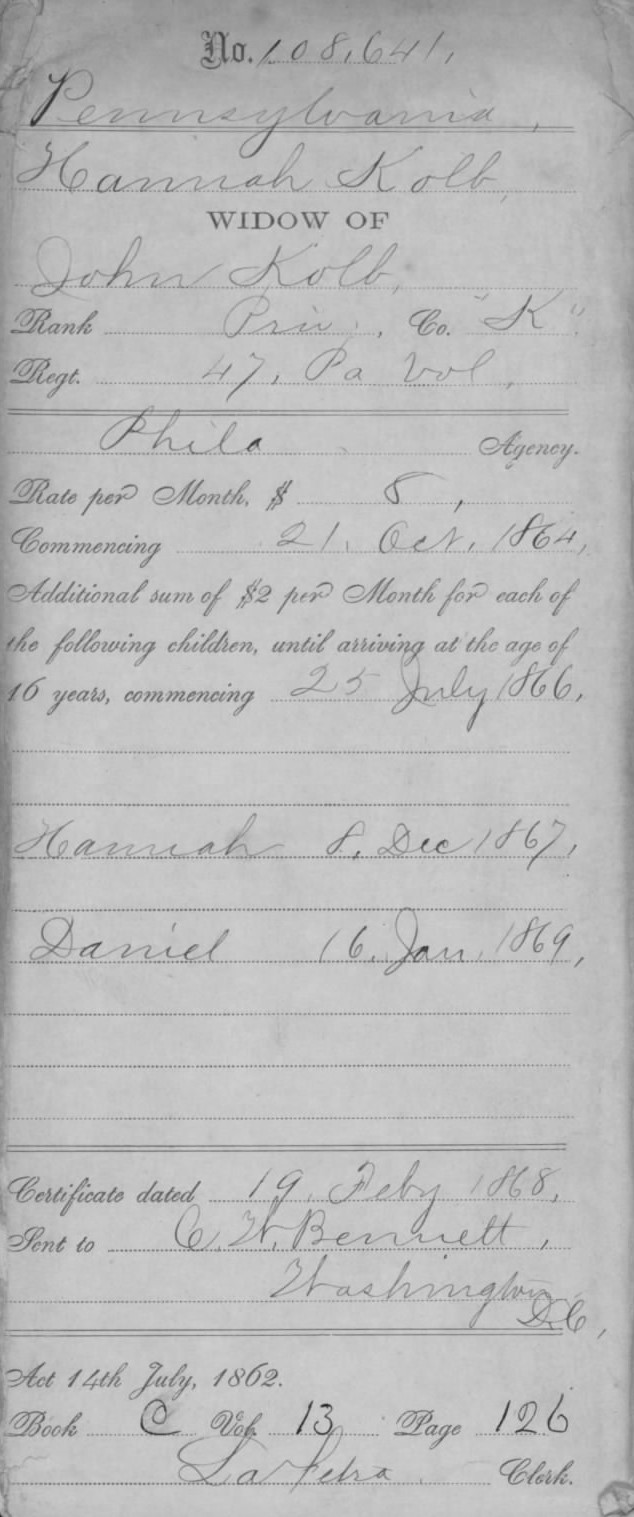 No. 108,641,
Pennsylvania,
Hannah Kolb,
WIDOW OF
John Kolb,
Rank Priv, Co. "K"
Regt. 47, Pa Vol,
Phila Agency.
Rate per Month, $ 8,
Commencing 21, Oct, 1864,
Additional sum of $2 per Month for each of
the following children, until arriving at the age of
16 years, commencing 25 July 1866,
Hannah 8, Dec 1867,
Daniel 16, Jan, 1869,
Certificate dated 19, Feby 1868,
Sent to C. W. Bennett,
Washington
D.C,
Act 14th July, 1862.
Book C Vol. 13 Page 126
La Fetra Clerk.